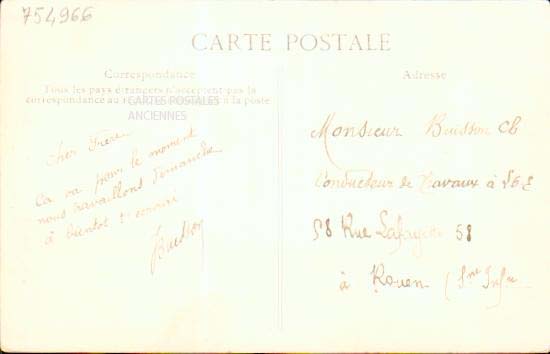 754966
CARTE POSTALE
Correspondance
Tous les pays étrangers n'acceptent pas la
correspondance au à la poste
CARTES POSTALES
ANCIENNES
Cher Frère
Ça va pour le moment
nous travaillons dimanche
à bientôt t'écrirai
JBuisson
Adresse
Monsieur Buisson Ch
Conducteur de Travaux à
58 Rue Lafayette 58
à Rouen (Sne Infre